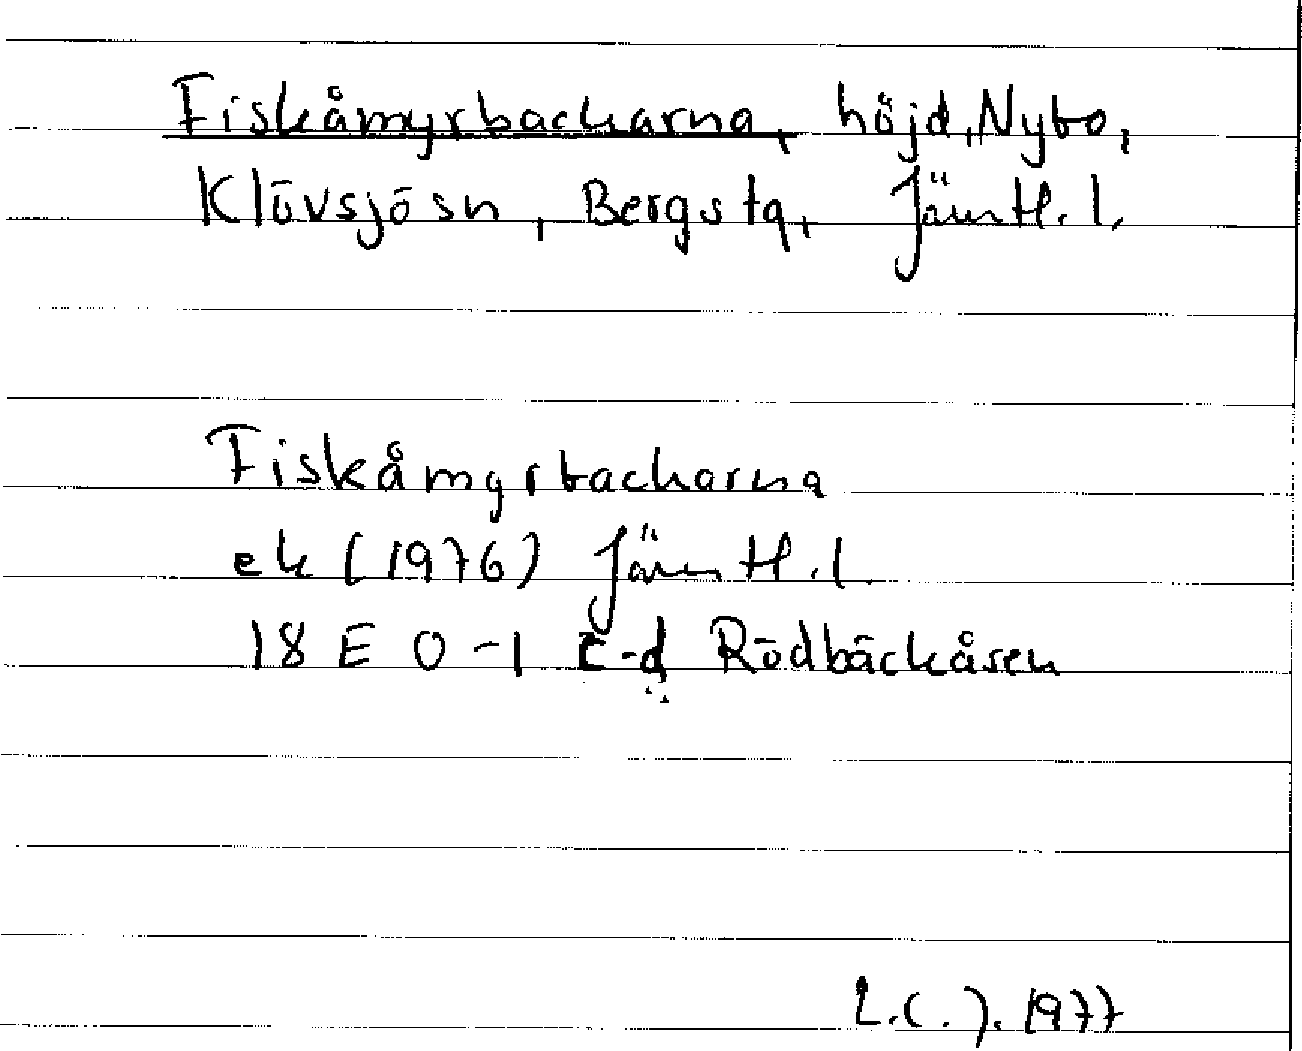 Fiskåmyrbackarna, höjd, Nybo,
Klövsjösn, Bergs tg, Jämtl. l.
Fiskåmyrbackarna
ek (1976) Jämtl. l.
18 E 0-1 c-d Rödbäckåsen
L.C.J. 1977